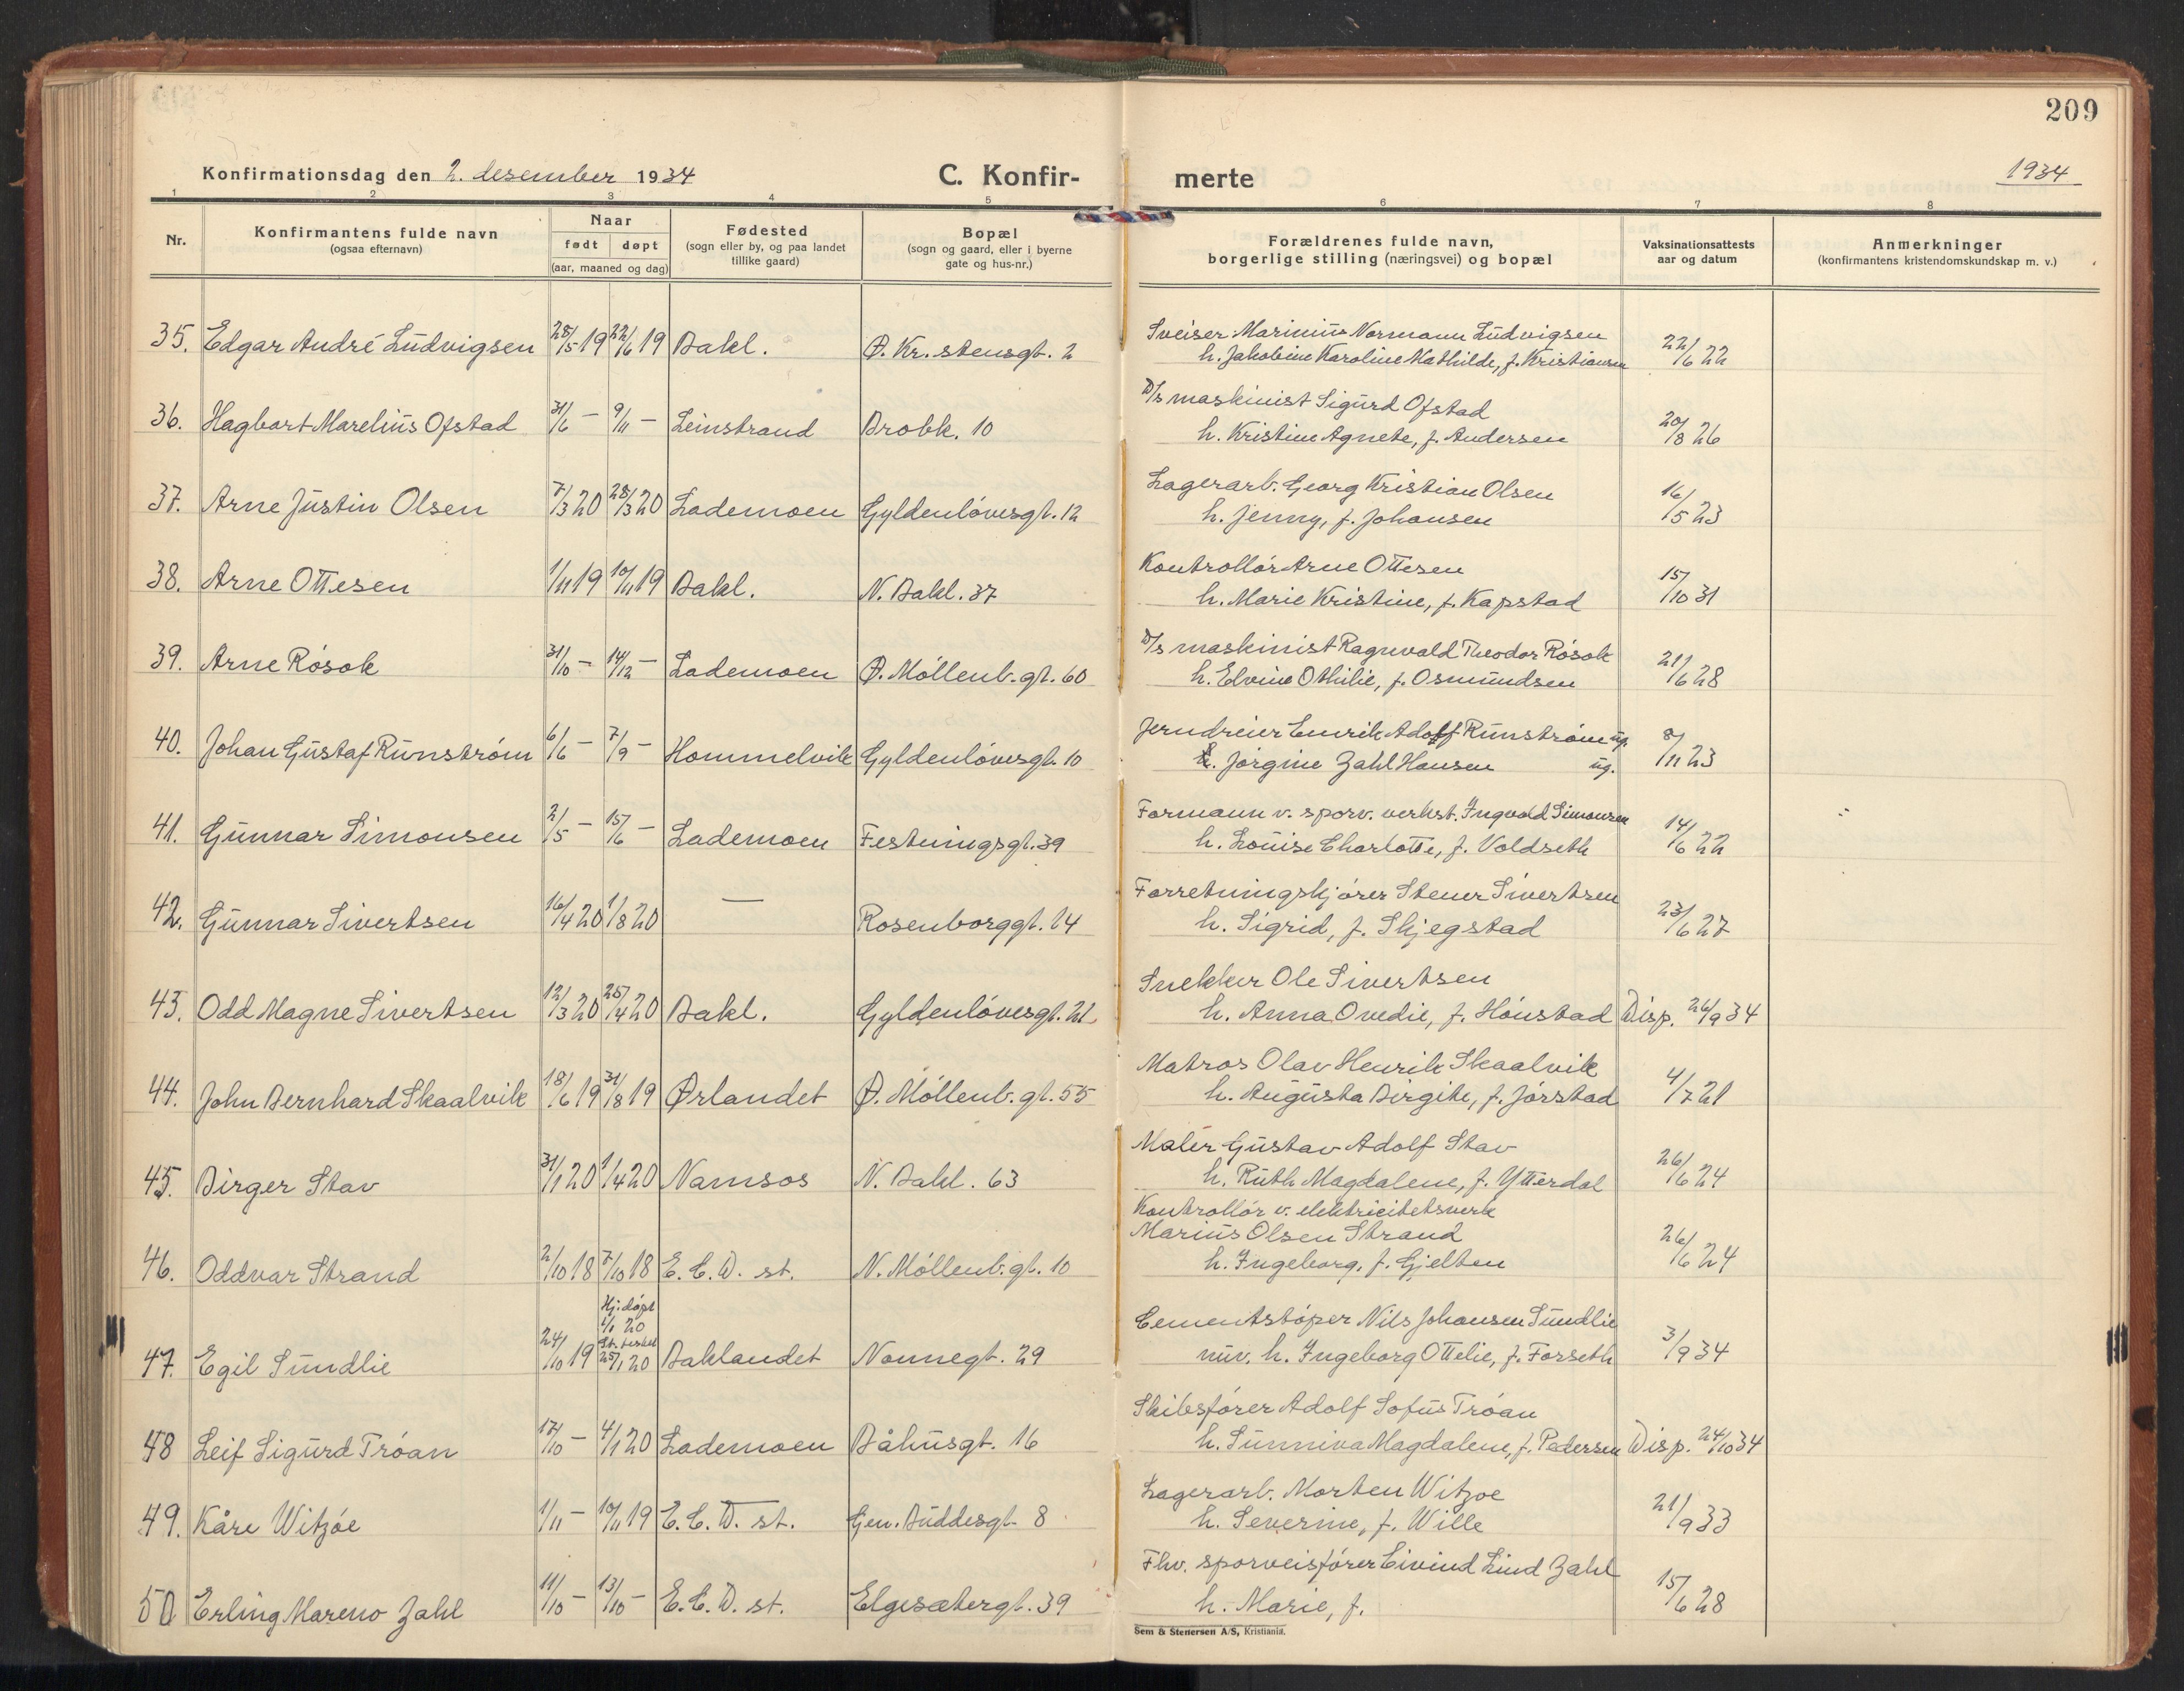 209
Konfirmationsdag den 2. desember 1934
C. Konfir-
merte
1934
1 2 3 4 5 6 7 8
Nr.
Konfirmantens fulde navn
(ogsaa efternavn)
Naar
født døpt
(aar, maaned og dag)
Fødested
(sogn eller by, og paa landet
tillike gaard)
Bopæl
(sogn og gaard, eller i byerne
gate og hus-nr.)
Forældrenes fulde navn,
borgerlige stilling (næringsvei) og bopæl
Vaksinationsattests
aar og datum
Anmerkninger
(konfirmantens kristendomskundskap m. v.)
Sveiser Marinius Normann Ludvigsen
35. Edgar André Ludvigsen 28/5 19 22/6 19 Bakl. Ø. Kr.stensgt. 2 h. Jakobine Karoline Mathilde, f. Kristiansen 22/6 22
D/s maskinist Sigurd Ofstad
36. Hagbart Marelius Ofstad 31/6 – 9/11 – Leinstrand Brobk. 10 h. Kristine Agnete, f. Andersen 20/8 26
Lagerarb. Georg Kristian Olsen
37. Arne Justin Olsen 7/3 20 28/3 20 Lademoen Gyldenløvesgt. 12 h. Jenny, f. Johansen 16/5 23
Kontrollør Arne Ottesen
38. Arne Ottesen 1/11 19 10/11 19 Bakl. N. Bakl. 37 h. Marie Kristine, f. Kapstad 15/10 31
D/s maskinist Ragnvald Theodor Røsok
39. Arne Røsok 31/10 – 14/12 – Lademoen Ø. Møllenb. gt. 60 h. Edvine Othilie, f. Osmundsen 21/6 28
Jerndreier Enrik Adolf Runstrøm ug.
40. Johan Gustaf Runstrøm 6/6 – 7/9 – Hommelvik Gyldenløvesgt. 10 Jørgine Zahl Hansen ug. 8/11 23
Formann v. sporv. verkst. Ingvald Simonsen
41. Gunnar Simonsen 2/5 – 15/6 – Lademoen Festningsgt. 39 h. Louise Charlotte, f. Voldseth 14/6 22
Forretningskjører Stener Sivertsen
42. Gunnar Sivertsen 16/4 20 1/8 20 — Rosenborggt. 14 h. Sigrid, f. Skjegstad 23/6 27
Snekker Ole Sivertsen
43. Odd Magne Sivertsen 12/3 20 25/4 20 Bakl. Gyldenløvesgt. 21 h. Anna Ovedie, f. Hønstad Disp. 26/9 34
Matros Olav Henrik Skaalvik
44. John Bernhard Skaalvik 18/6 19 31/8 19 Ørlandet Ø. Møllenb. gt. 55 h. Augusta Birgite, f. Jørstad 4/7 21
Maler Gustav Adolf Stav
45. Birger Stav 31/1 20 1/4 20 Namsos N. Bakl. 63 h. Ruth Magdalene, f. Ytterdal 26/6 24
Kontrollør v. elektricitetsverk
Marius Olsen Strand
46. Oddvar Strand 2/10 18 7/10 18 E. C. D. st. N. Møllenb. gt. 10 h. Ingeborg, f. Gjelten 26/6 24
Hj. døpt
1/1 20
Cementstøper Nils Johansen Sundlie
47. Egil Sundlie 24/10 19 25/1 20 Baklandet Nonnegt. 29 nuv. h. Ingeborg Ottelie, f. Forseth 3/9 34
Skibsfører Adolf Sofus Trøan
48 Leif Sigurd Trøan 17/10 – 4/1 20 Lademoen Båhusgt. 16 h. Sunniva Magdalene, f. Pedersen Disp. 24/10 34
Lagerarb. Morten Witzoe
49. Kåre Witzøe 1/11 – 10/11 19 E. C. D. st. Gen. Buddesgt. 8 h. Severine, f. Wille 21/9 33
Fhv. sporveisfører Eivind Lind Zahl
50 Erling Mareno Zahl 11/10 – 13/10 – E. C. D. st. Elgesætergt. 39 h. Marie, f. 15/6 28
Sem & Stenersen A/S, Kristiania.